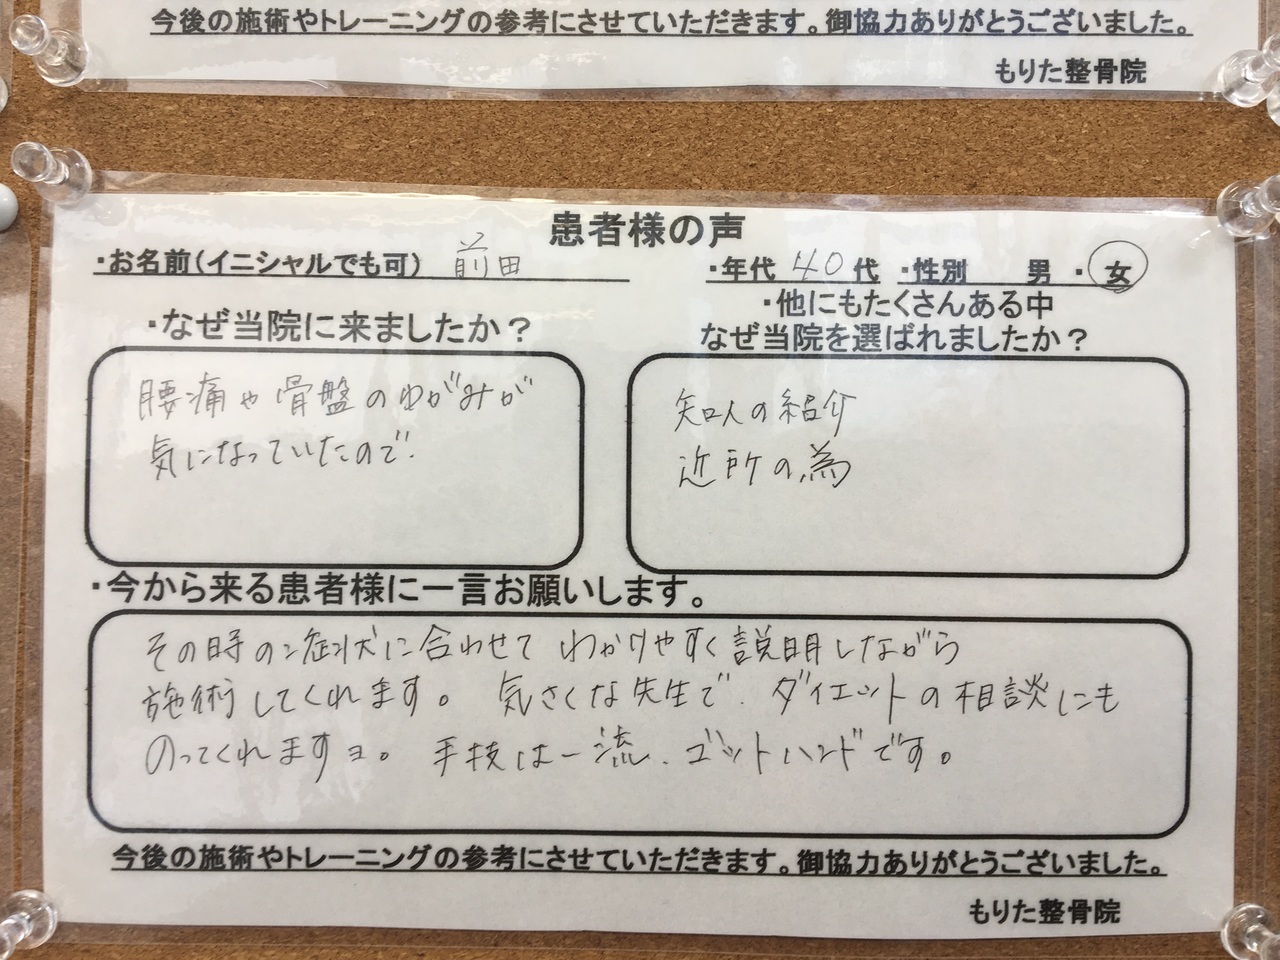 今後の施術やトレーニングの参考にさせていただきます。御協力ありがとうございました。
もりた整骨院
患者様の声
・お名前(イニシャルでも可) 前田
・年代 40 代 ・性別 男 ・ 女
・なぜ当院に来ましたか？
・他にもたくさんある中
なぜ当院を選ばれましたか？
腰痛や骨盤のゆがみが
気になっていたので.
知人の紹介
近所の為
・今から来る患者様に一言お願いします。
その時の症状に合わせて わかりやすく説明しながら
施術してくれます。 気さくな先生で、ダイエットの相談にも
のってくれますョ。 手技は一流、ゴットハンドです。
今後の施術やトレーニングの参考にさせていただきます。御協力ありがとうございました。
もりた整骨院